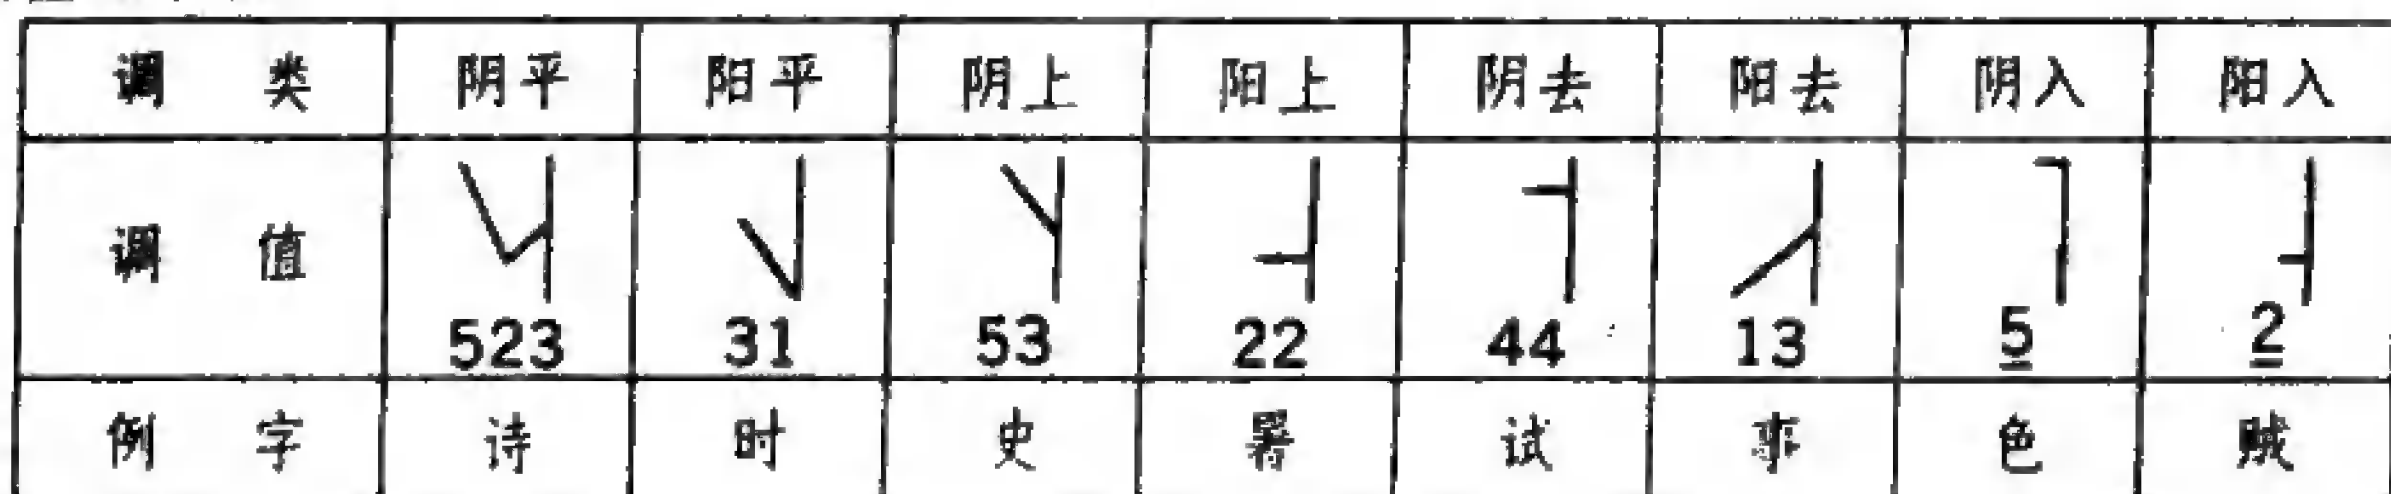 调 类 阴平 阳平 阴上 阳上 阴去 阳去 阴入 阳入
调 值 523 31 53 22 44 13 5 2
例 字 诗 时 史 署 试 事 色 贼